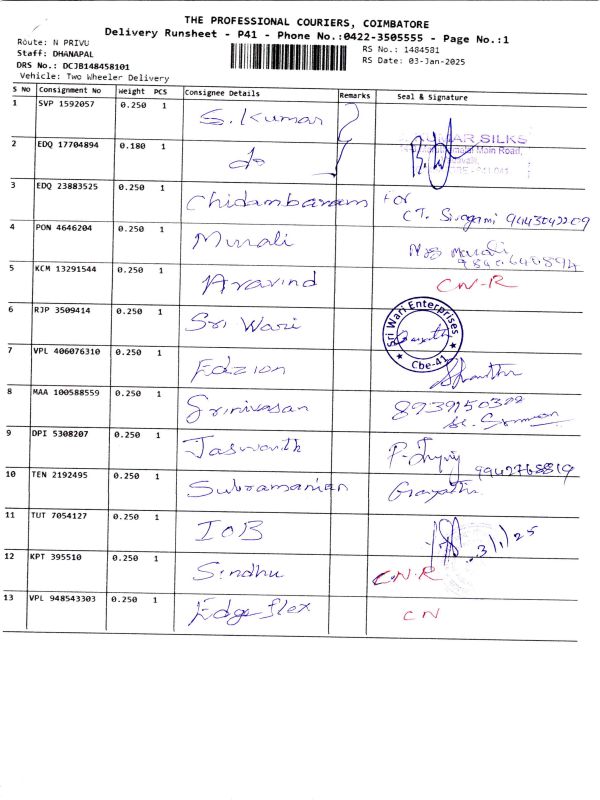 THE PROFESSIONAL COURIERS, COIMBATORE
Delivery Runsheet - P41 - Phone No.:0422-3505555 - Page No.:1
Route: N PRIVU
Staff: DHANAPAL
DRS No.: DCJB148458101
Vehicle: Two Wheeler Delivery
RS No.: 1484581
RS Date: 03-Jan-2025
S No Consignment No Weight PCS Consignee Details Remarks Seal & Signature
1 SVP 1592057 0.250 1 S. Kumar
2 EDQ 17704894 0.180 1 do
KUMAR SILKS
Main Road,
3 EDQ 23883525 0.250 1 Chidambaram For
CT. Sivagami 9443042209
4 PON 4646204 0.250 1 Murali
Murali
5 KCM 13291544 0.250 1 Aravind CN-R
6 RJP 3509414 0.250 1 Sri Wari
Sri Wari Enterprises
Cbe-41
7 VPL 406076310 0.250 1 Edzion
8 MAA 100588559 0.250 1 Srinivasan
9 DPI 5308207 0.250 1 Jaswanth
9942768819
10 TEN 2192495 0.250 1 Subramanian Gayathri
11 TUT 7054127 0.250 1 IOB
3/1/25
12 KPT 395510 0.250 1 Sindhu C.N.R
13 VPL 948543303 0.250 1 Edge flex CN